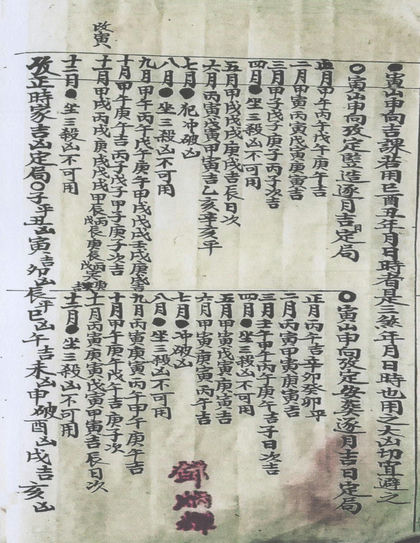 ●寅山申向吉課若用巳酉丑年月日時者是三煞年月日時也用之大凶切宜避之
○寅山申向攷定豎造逐月吉日定局
正月甲午丙午戊午庚午吉
二月甲寅丙寅戊寅庚寅吉
三月甲子戊子丙子庚子次吉
四月●坐三殺凶不可用
五月甲戌戊戌庚戌吉辰日次
六月丙寅戊寅甲寅吉乙亥辛亥平
七月●犯冲破凶
八月●坐三殺凶不可用
九月甲午
十月甲午庚午吉丙子戊子甲子庚子次吉
十一月
十二月●坐三殺凶不可用
○寅山申向攷定安葬逐月吉日定局
正月丙午吉辛卯癸卯平
二月丙寅甲寅庚寅吉
三月壬午甲午丙午庚午吉子日次吉
四月●坐三殺凶不可用
五月甲寅戊寅庚寅吉
六月甲寅庚寅丙午吉
七月●冲破凶
八月●坐三殺凶不可用
九月丙寅庚寅丙午甲午庚午吉
十月甲午庚午吉庚子次
十一月丙寅庚寅戊寅甲寅吉辰日次
十二月●坐三殺凶不可用
攷正時家吉凶定局○子平丑凶寅吉卯凶辰平巳凶午吉未凶申破酉凶戌吉亥凶
改寅